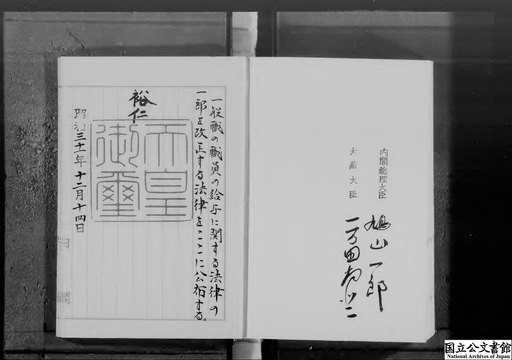 一般職の職員の給与に関する法律の
一部を改正する法律をここに公布する。
裕仁
天皇
御璽
昭和三十一年十二月十四日
内閣総理大臣
鳩山一郎
大蔵大臣
一万田尚登
国立公文書館
National Archives of Japan